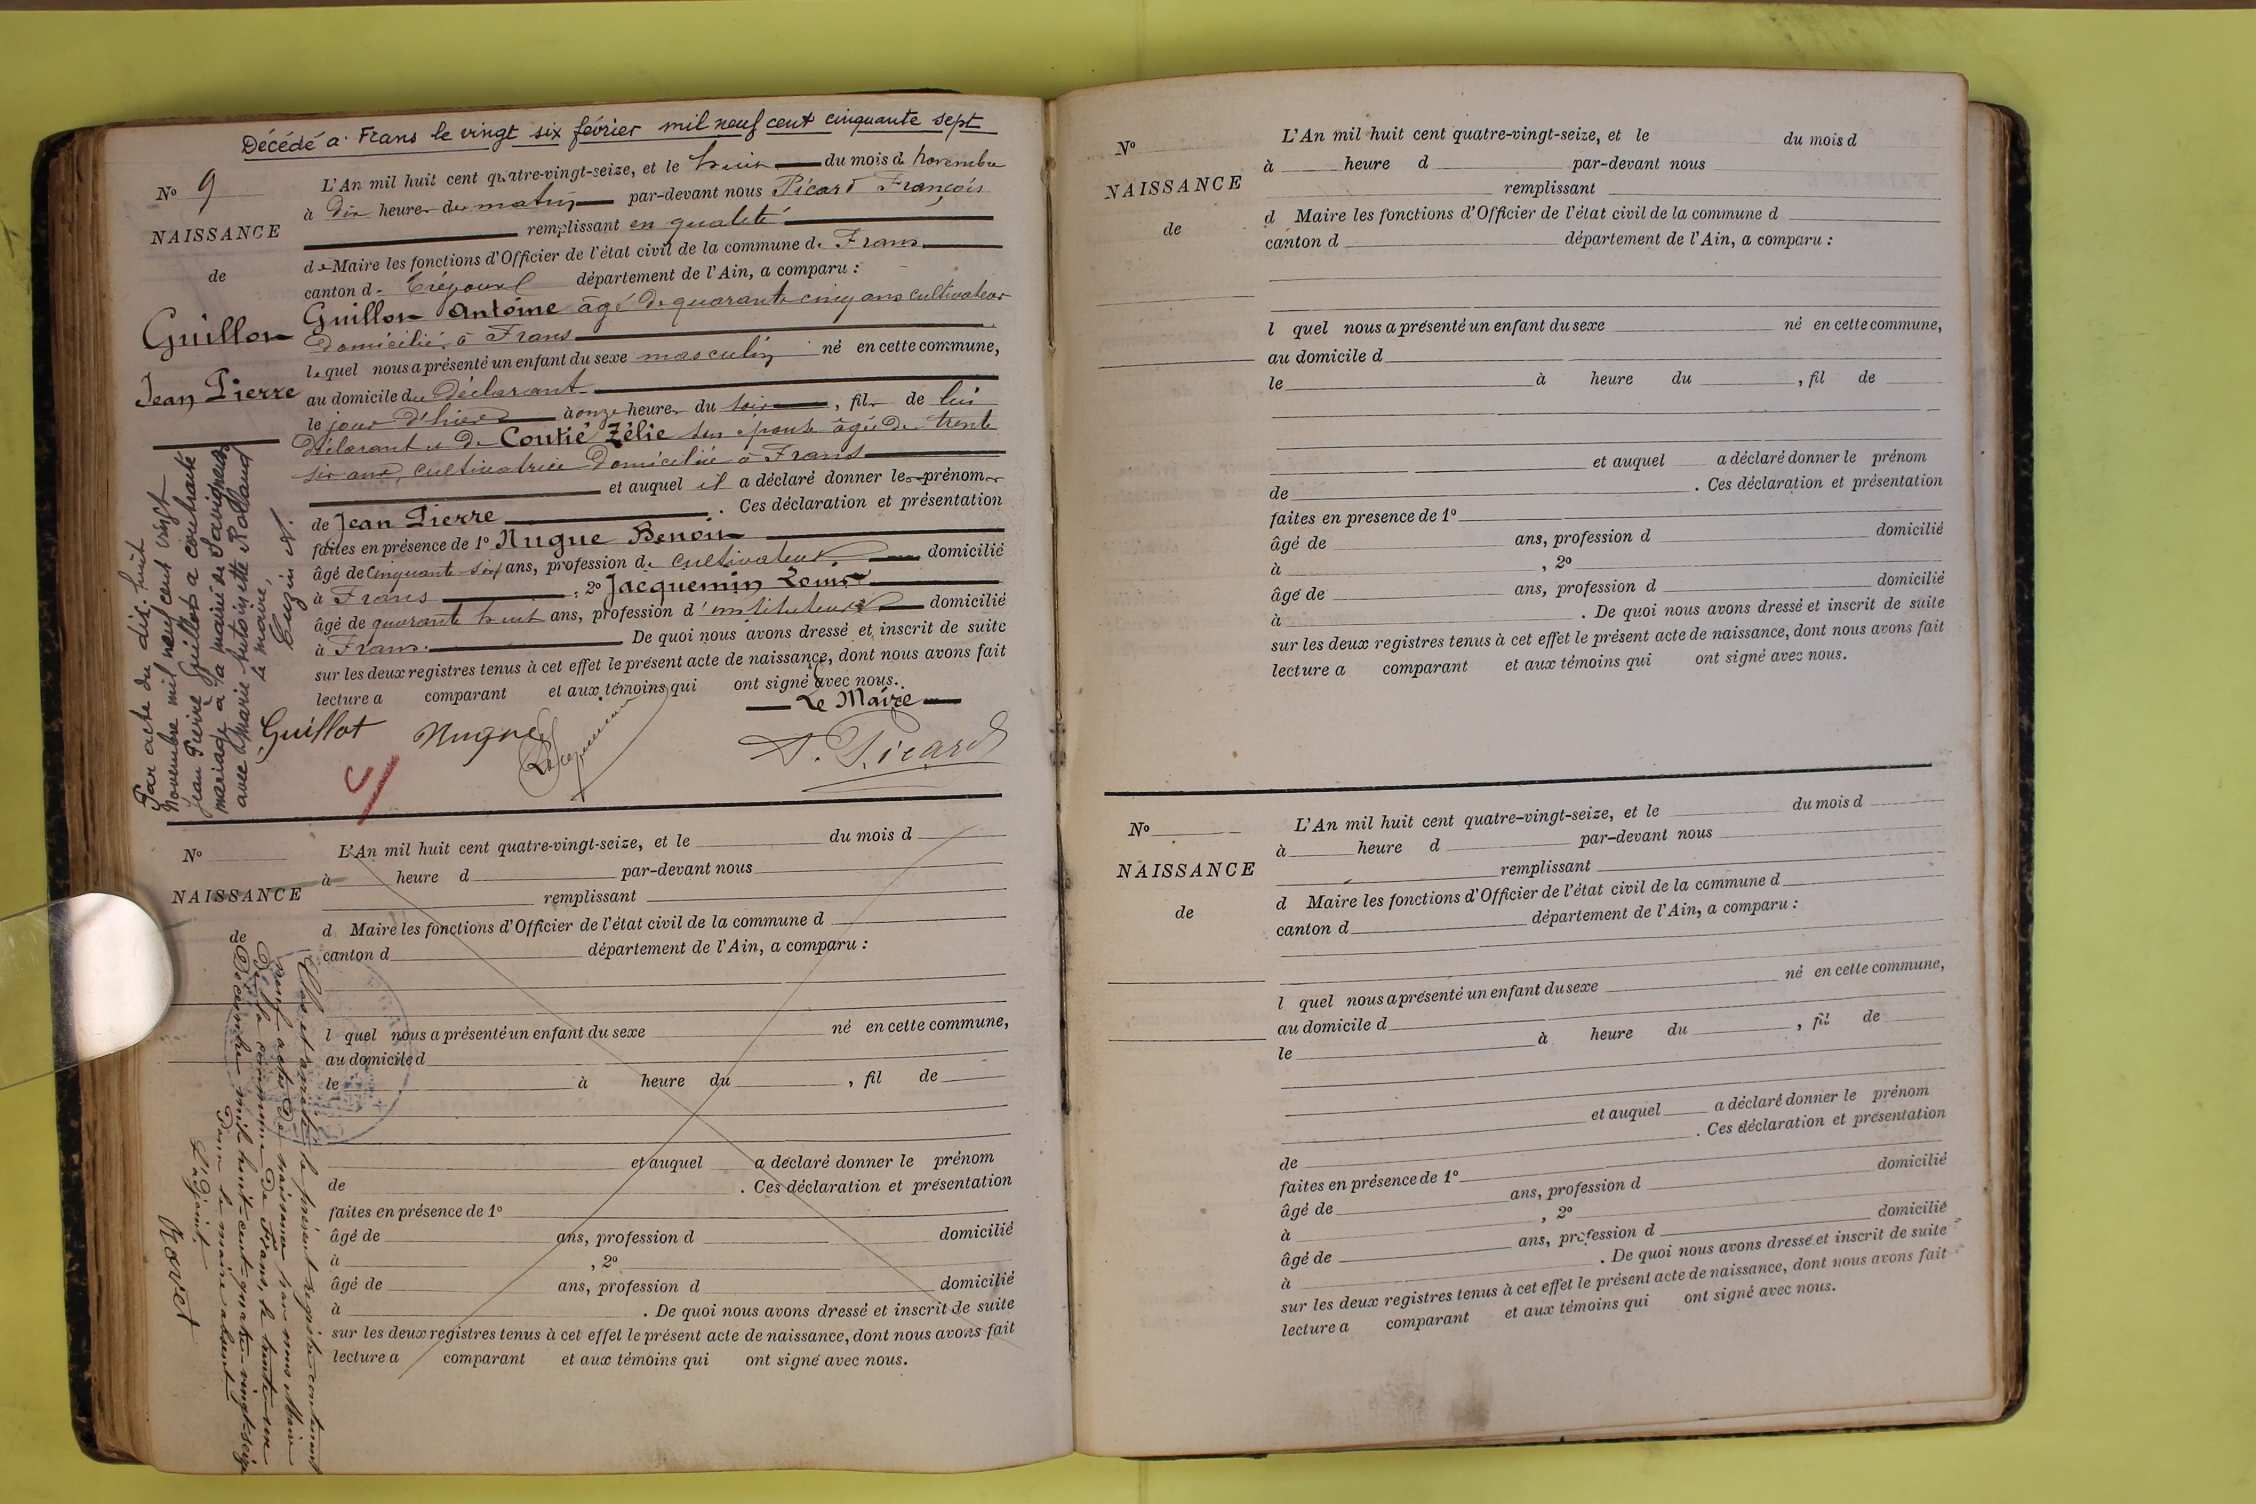 Décédé a Frans le vingt six février mil neuf cent cinquante sept
No 9
NAISSANCE
de
Guillon
Jean Pierre
L'An mil huit cent quatre-vingt-seize, et le huit du mois de novembre
à dix heures du matin par-devant nous Picard François
remplissant en qualité
de Maire les fonctions d'Officier de l'état civil de la commune de Frans
canton de Trévoux département de l'Ain, a comparu :
Guillon Antoine âgé de quarante cinq ans cultivateur
domicilié à Frans
lequel nous a présenté un enfant du sexe masculin né en cette commune,
au domicile du déclarant
le jour d'hier à onze heures du soir, fils de lui
déclarant et de Coutié Zélie son épouse âgée de trente
six ans, cultivatrice domiciliée à Frans
et auquel il a déclaré donner les prénoms
de Jean Pierre . Ces déclaration et présentation
faites en présence de 1° Nugue Benoit
âgé de cinquante six ans, profession de cultivateur domicilié
à Frans , 2° Jacquemin Louis
âgé de quarante huit ans, profession d'instituteur domicilié
à Frans. De quoi nous avons dressé et inscrit de suite
sur les deux registres tenus à cet effet le présent acte de naissance, dont nous avons fait
lecture a comparant et aux témoins qui ont signé avec nous.
Le Maire
Guillot Nugue Jacquemin F. Picard
Par acte du dix huit
Novembre mil neuf cent vingt
Jean Pierre Guillot a contracté
mariage à la mairie de Savigneux
avec Marie Antoinette Rolland
Le maire,
Cuzin
No
NAISSANCE
de
L'An mil huit cent quatre-vingt-seize, et le du mois d
à heure d par-devant nous
remplissant
d Maire les fonctions d'Officier de l'état civil de la commune d
canton d département de l'Ain, a comparu :
l quel nous a présenté un enfant du sexe né en cette commune,
au domicile d
le à heure du , fil de
et auquel a déclaré donner le prénom
de . Ces déclaration et présentation
faites en présence de 1°
âgé de ans, profession d domicilié
à , 2°
âgé de ans, profession d domicilié
à . De quoi nous avons dressé et inscrit de suite
sur les deux registres tenus à cet effet le présent acte de naissance, dont nous avons fait
lecture a comparant et aux témoins qui ont signé avec nous.
Clos et arrêté le présent registre contenant
neuf actes de naissance par nous Maire
de la commune de Frans, le trente-un
Décembre mil huit-cent-quatre-vingt-seize
Pour le maire absent
L'adjoint
No
NAISSANCE
de
L'An mil huit cent quatre-vingt-seize, et le du mois d
à heure d par-devant nous
remplissant
d Maire les fonctions d'Officier de l'état civil de la commune d
canton d département de l'Ain, a comparu :
l quel nous a présenté un enfant du sexe né en cette commune,
au domicile d
le à heure du , fil de
et auquel a déclaré donner le prénom
de . Ces déclaration et présentation
faites en présence de 1°
âgé de ans, profession d domicilié
à , 2°
âgé de ans, profession d domicilié
à . De quoi nous avons dressé et inscrit de suite
sur les deux registres tenus à cet effet le présent acte de naissance, dont nous avons fait
lecture a comparant et aux témoins qui ont signé avec nous.
No
NAISSANCE
de
L'An mil huit cent quatre-vingt-seize, et le du mois d
à heure d par-devant nous
remplissant
d Maire les fonctions d'Officier de l'état civil de la commune d
canton d département de l'Ain, a comparu :
l quel nous a présenté un enfant du sexe né en cette commune,
au domicile d
le à heure du , fil de
et auquel a déclaré donner le prénom
. Ces déclaration et présentation
de
faites en présence de 1° domicilié
âgé de ans, profession d
à , 2° domicilié
âgé de ans, profession d
à . De quoi nous avons dressé et inscrit de suite
sur les deux registres tenus à cet effet le présent acte de naissance, dont nous avons fait
lecture a comparant et aux témoins qui ont signé avec nous.